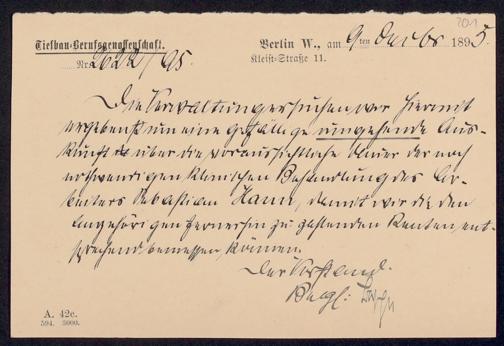 201
Tiefbau-Berufsgenossenschaft.
Berlin W., am 9ten Dezbr 1895.
Nr. 2622/95.
Kleist-Straße 11.
Die Verwaltung ersuchen wir hiermit
ergebenst um eine gefällige umgehende Aus-
kunft über die voraussichtliche Dauer der noch
nothwendigen klinischen Behandlung des Ar-
beiters Sebastian Hann, damit wir die den
Angehörigen fernerhin zu zahlenden Renten, ent-
sprechend bemessen können.
Der Vorstand.
A. 42c.
594. 3000.